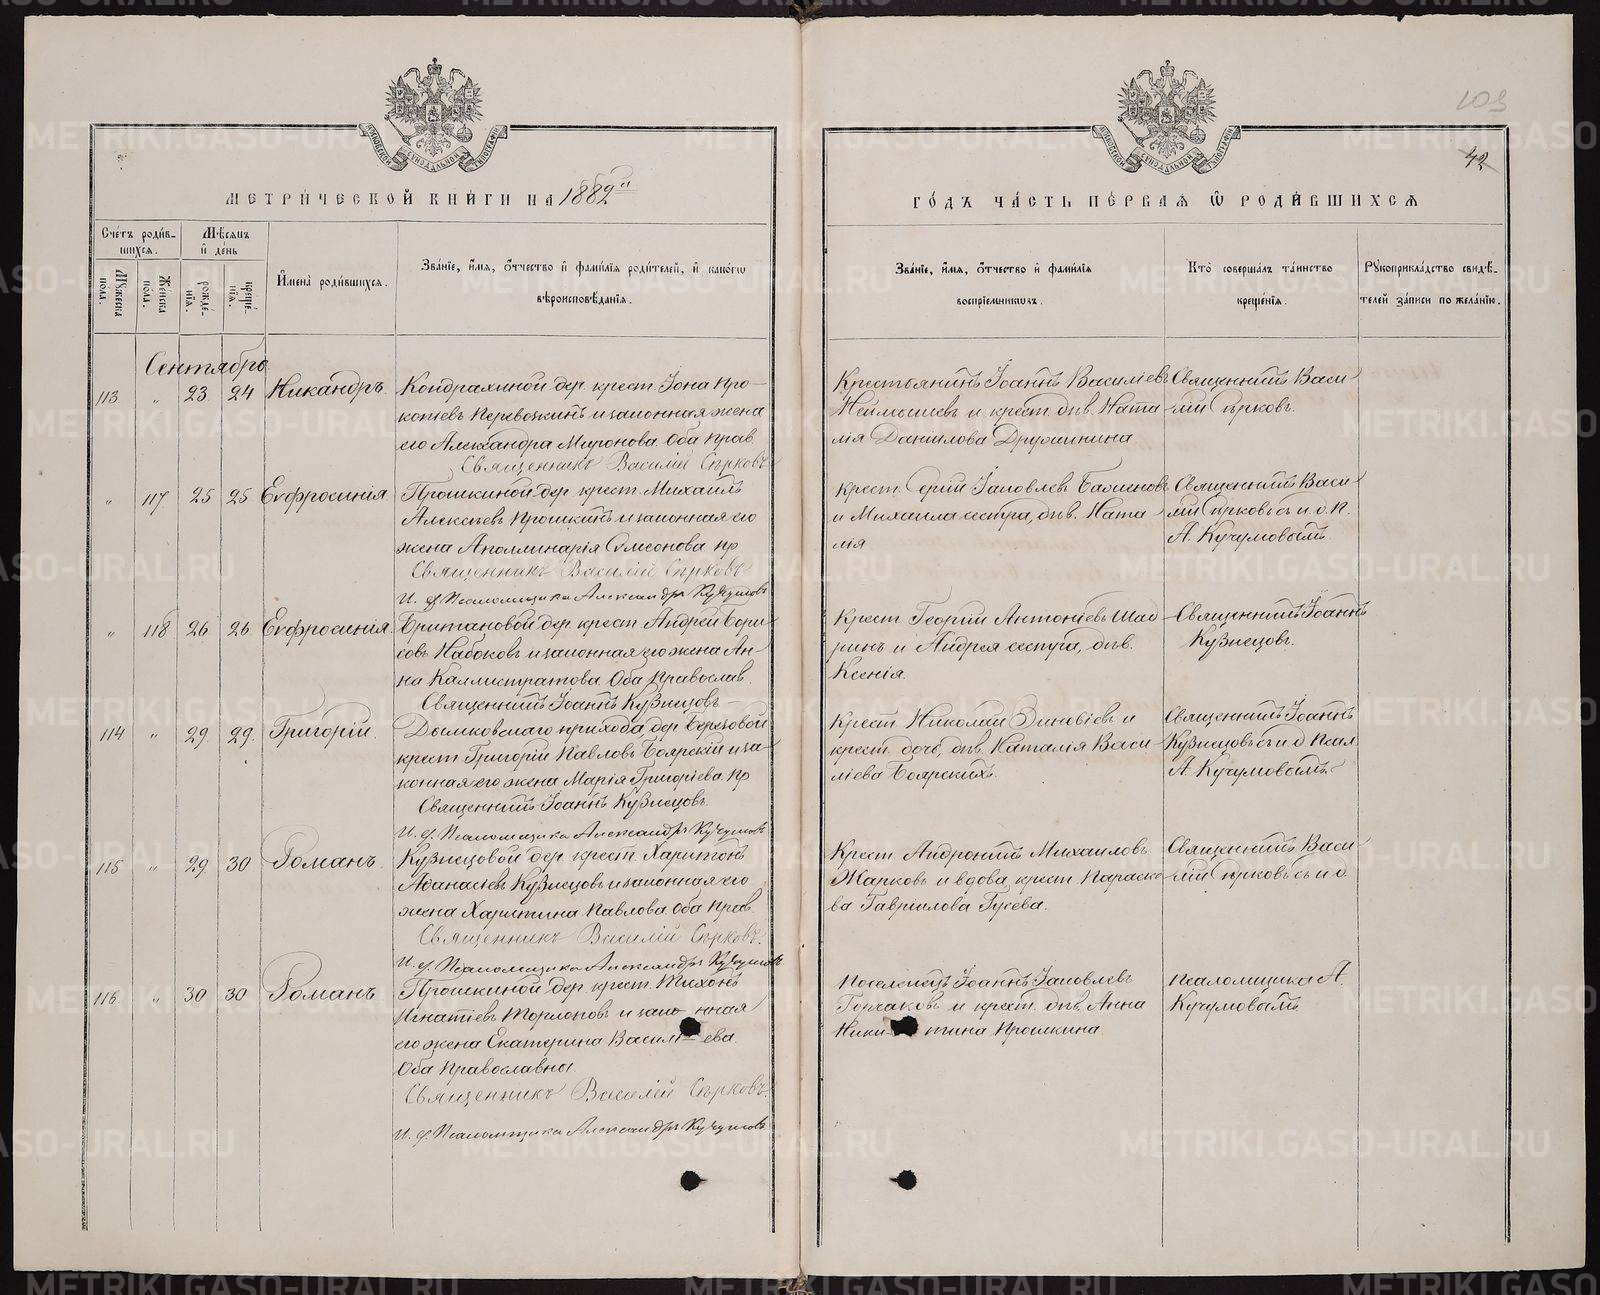 103
42
МЕТРИЧЕСКОЙ КНИГИ НА 1882й
ГОДЪ ЧАСТЬ ПЕРВАЯ Ѡ РОДИВШИХСЯ
Счетъ родив-
шихся.
Мѣсяцъ
и день
Мужеска
пола.
Женска
пола.
рожде-
нія.
креще-
нія.
Имена родившихся.
Званіе, имя, отчество и фамилія родителей, и какого
вѣроисповѣданія.
Званіе, имя, отчество и фамилія
воспріемниковъ.
Кто совершалъ таинство
крещенія.
Рукоприкладство свидѣ-
телей записи по желанію.
Сентябрь
113 " 23 24 Никандръ.
Кондрахиной дер. крест. Іона Про-
копіевъ Перевозкинъ и законная жена
его Александра Миронова. Оба прав.
Священникъ Василій Сѣрковъ
Крестьянинъ Іоаннъ Василіевъ
Неймышевъ и крест. дѣв. Ната-
лія Данилова Дружинина
Священникъ Васи-
лій Сѣрковъ.
" 117 25 25 Евфросинія
Прошкиной дер. крест. Михаилъ
Алексѣевъ Прошкинъ и законная его
жена Аполлинарія Симеонова. пр
Священникъ Василій Сѣрковъ
И. д. Псаломщика Александръ Кучумовъ
Крест. Сергій Іаковлевъ Баженовъ
и Михаила сестра, дѣв. Ната-
лія
Священникъ Васи-
лій Сѣрковъ съ и. д. П.
А. Кучумовымъ.
" 118 26 26 Евфросинія.
Британовой дер. крест. Андрей Бори-
совъ Набоковъ и законная его жена Ан-
на Каллистратова. Оба православ.
Священникъ Іоаннъ Кузнецовъ
Крест. Георгій Антоніевъ Шад-
ринъ и Андрея сестра, дѣв.
Ксенія.
Священникъ Іоаннъ
Кузнецовъ.
114 " 29. 29. Григорій.
Дымковскаго прихода, дер. Березовой
крест. Григорій Павловъ Боярскій и за-
конная его жена Марія Григоріева. пр
Священникъ Іоаннъ Кузнецовъ.
И. д. Псаломщика Александръ Кучумовъ
Крест. Николай Зиновіевъ и
крест. дочь, дѣв. Наталія Васи-
ліева Боярскихъ.
Священникъ Іоаннъ
Кузнецовъ съ и. д. Псал.
А. Кучумовымъ.
115 " 29. 30 Романъ.
Кузнецовой дер. крест. Харитонъ
Аѳанасіевъ Кузнецовъ и законная его
жена Харитина Павлова. Оба прав.
Священникъ Василій Сѣрковъ.
И. д. Псаломщика Александръ Кучумовъ
Крест. Андроникъ Михаиловъ
Жарковъ и вдова, крест. Параске-
ва Гавриилова Гусева.
Священникъ Васи-
лій Сѣрковъ съ и. д.
116 " 30 30 Романъ
Прошкиной дер. крест. Тихонъ
Игнатіевъ Торлоповъ и зако-нная
его жена Екатерина Васил-ева.
Оба православны.
Священникъ Василій Сѣрковъ.
И. д. Псаломщика Александръ Кучумовъ
Поселенецъ Іоаннъ Іаковлевъ
Горчаковъ и крест. дѣв. Анна
Ники-тина Прошкина
Псаломщика А.
Кучумовымъ
METRIKI.GASO-URAL.RU